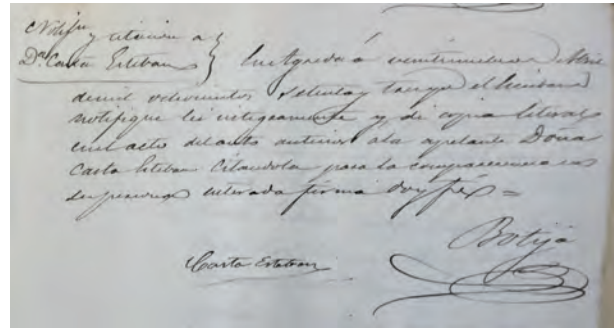 Notifon y citación a
Dª. Casta Esteban } En Agreda á veintinueve Abril
de mil ochocientos setenta y tres yo el Escribano
notifiqué leí integramente y di copia literal
en el acto del auto anterior a la apelante Doña
Casta Esteban citandola para la comparecencia
enterada firma doy fé =
Botija
Casta Esteban